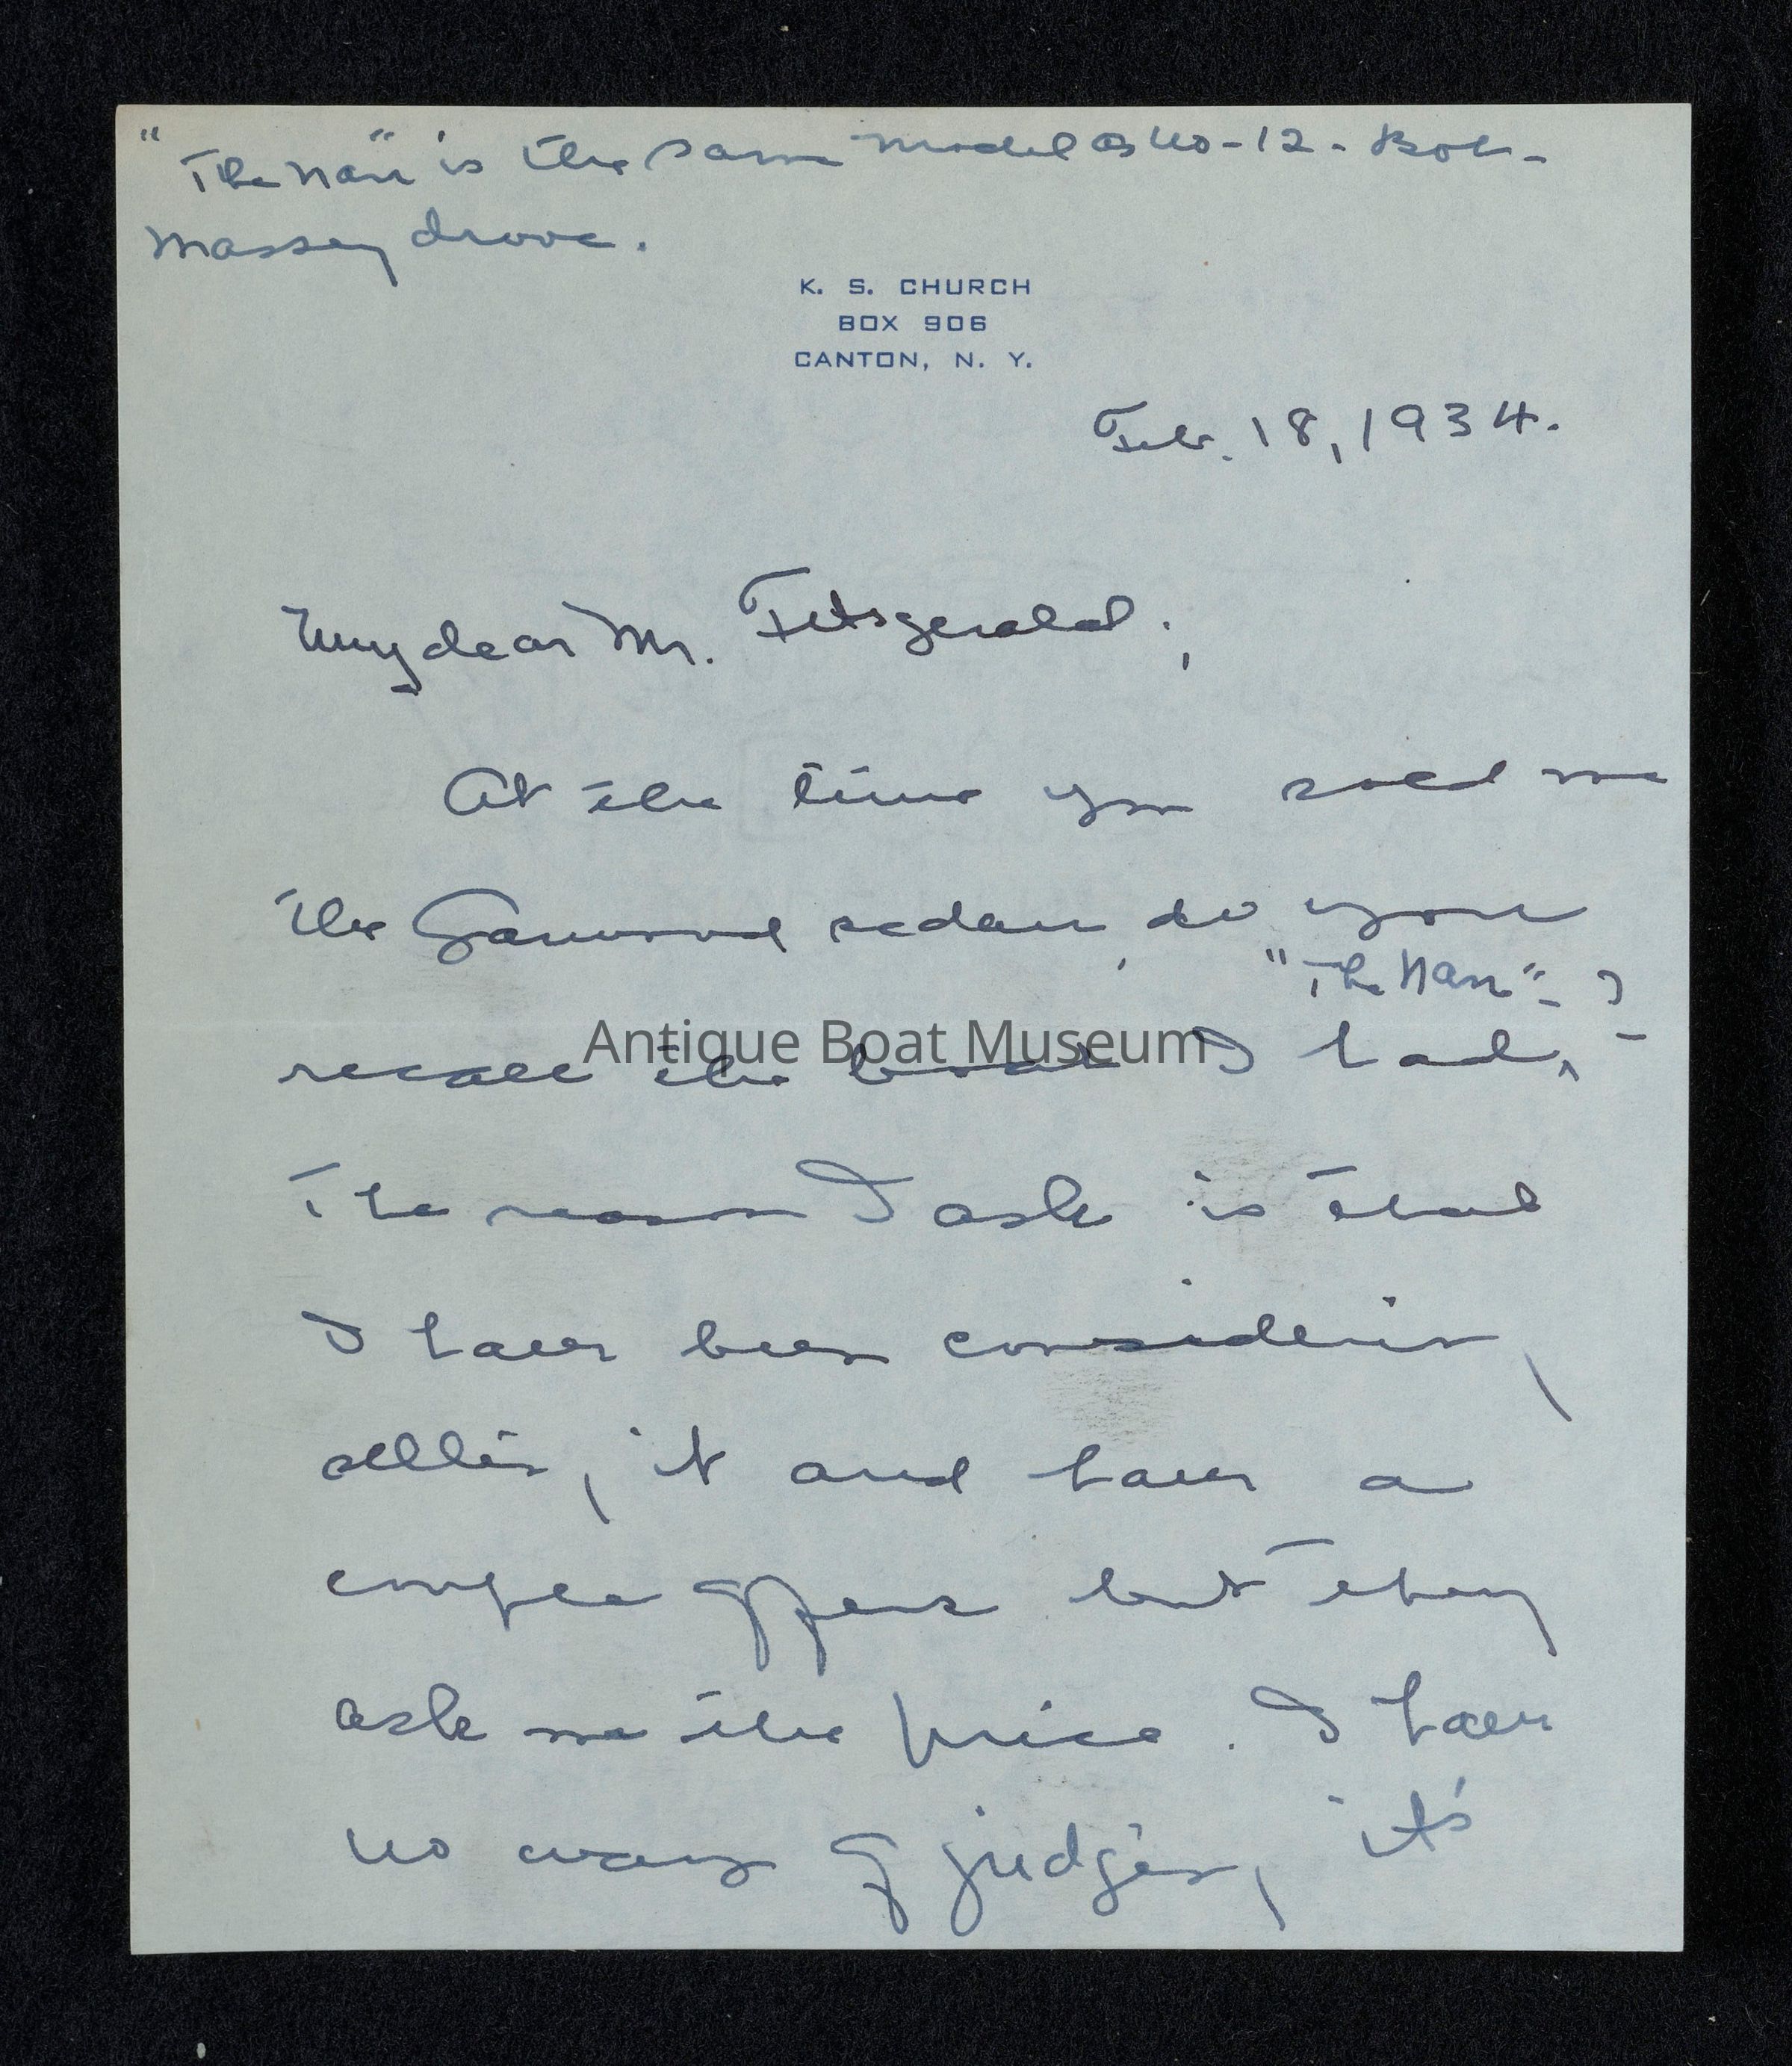 "The Nan" is the same model as No-12. Bob-
Massey drove.
K. S. CHURCH
BOX 906
CANTON, N. Y.
Feb. 18, 1934.
My dear Mr. Fitzgerald;
At the time you sold me
the Garwood sedan, do you
"The Nan"- ?
recall the boat I had,
Antique Boat Museum
The reason I ask is that
I have been considering
selling it and have a
couple offers but they
ask me the price. I have
no way of judging it's